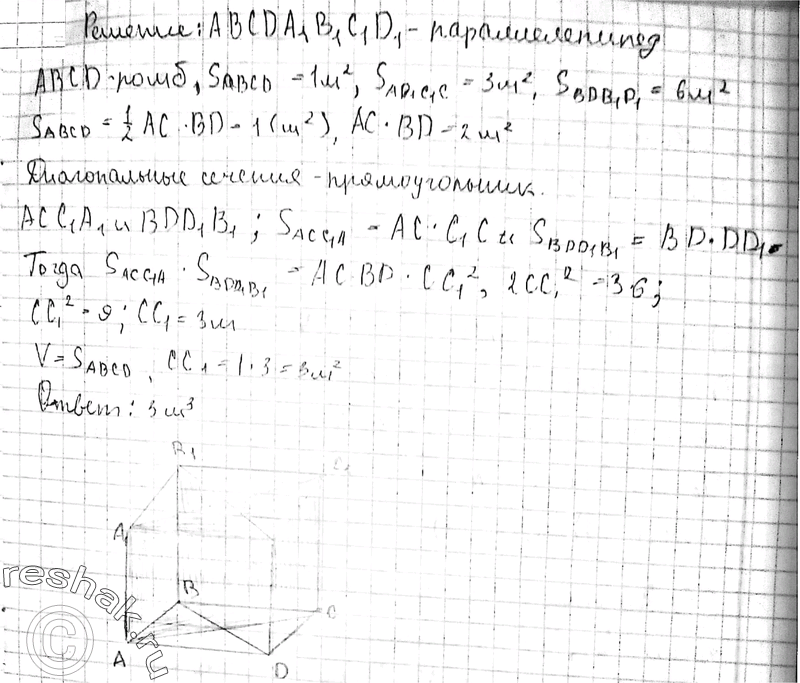 Решение: ABCDA₁B₁C₁D₁ - параллелепипед
ABCD-ромб, SABCD = 1м², SAD₁C₁C = 3м², SBDB₁D₁ = 6м²
SABCD = 1/2 AC · BD = 1(м²), AC · BD = 2м²
Диагональные сечения - прямоугольник.
ACC₁A₁ и BDD₁B₁; SACC₁A = AC · C₁C и SBDD₁B₁ = BD · DD₁.
Тогда SACC₁A · SBDD₁B₁ = AC BD · CC₁², 2CC₁² = 3·6;
CC₁² = 9; CC₁ = 3м
V = SABCD, CC₁ = 1·3 = 3м²
Ответ: 3м³
B₁
C₁
A₁
B
C
A
D
reshak.ru
©